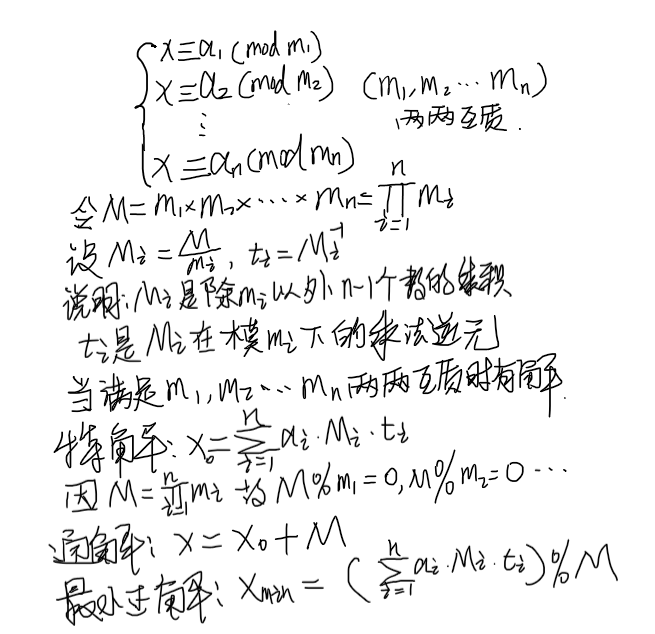 x≡a₁(mod m₁)
x≡a₂(mod m₂) (m₁,m₂⋯mₙ)
⋮ 两两互质.
x≡aₙ(mod mₙ)
令M=m₁×m₂×⋯×mₙ=∏ᵢ₌₁ⁿ mᵢ
设Mᵢ=M/mᵢ, tᵢ=Mᵢ⁻¹
说明:Mᵢ是除mᵢ以外n-1个数的乘积
tᵢ是Mᵢ在模mᵢ下的乘法逆元
当满足m₁,m₂⋯mₙ两两互质时有解.
特解:x₀=∑ᵢ₌₁ⁿ aᵢ·Mᵢ·tᵢ
因M=∏ᵢ₌₁ⁿ mᵢ故M%m₁=0,M%m₂=0⋯
通解:x=x₀+M
最小正解:xmin=(∑ᵢ₌₁ⁿ aᵢ·Mᵢ·tᵢ)%M